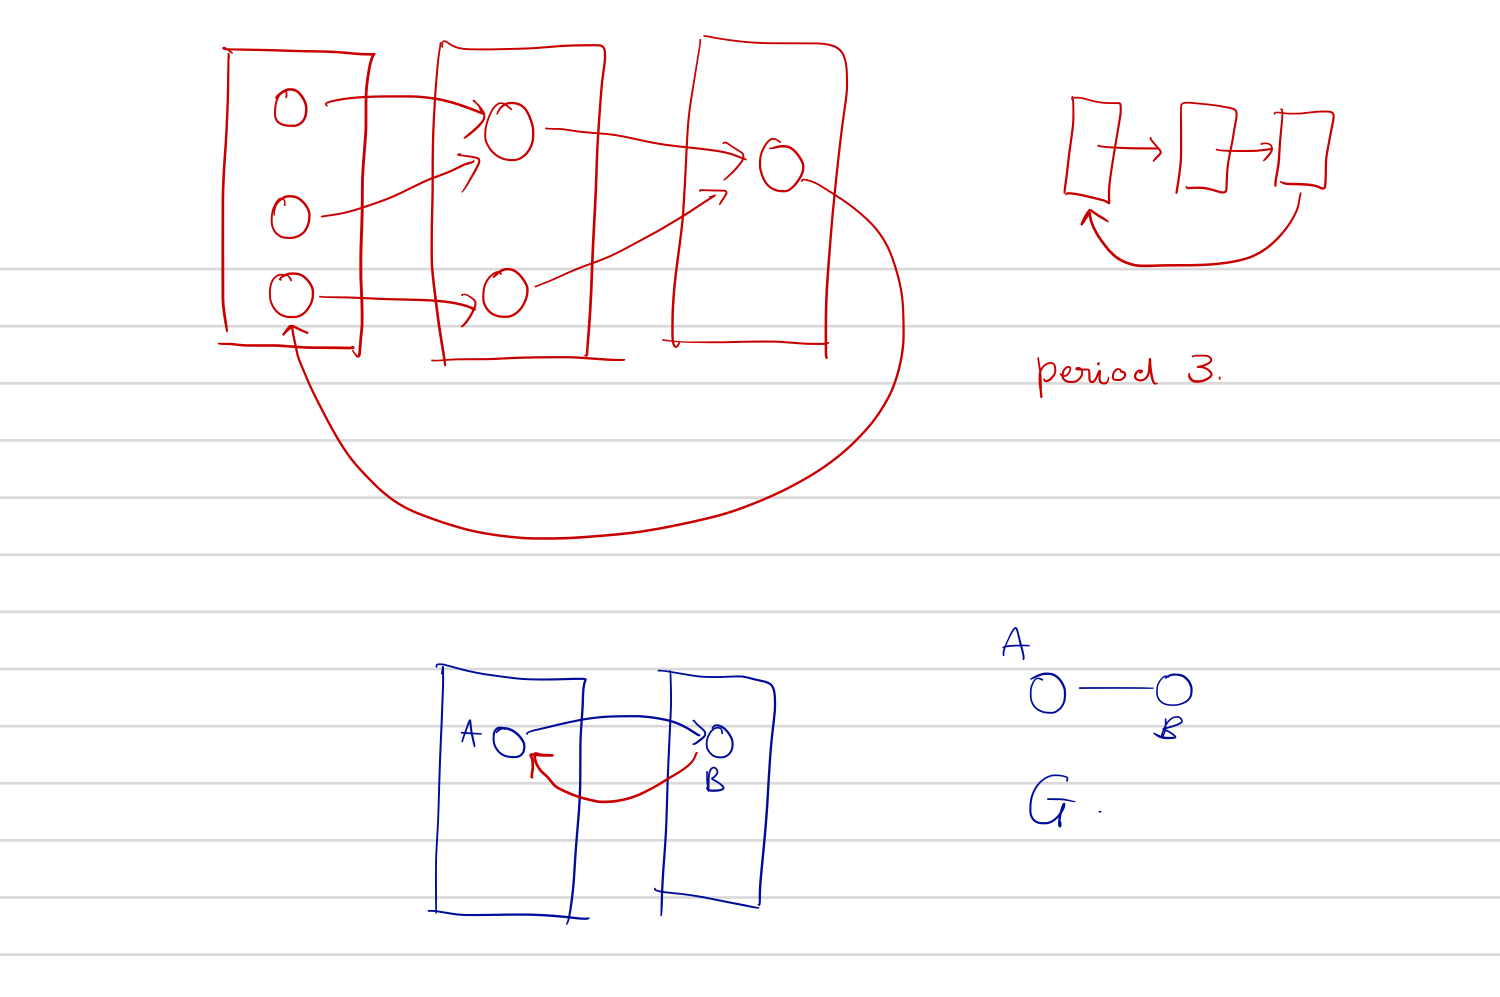 period 3.
A
B
A
B
G.